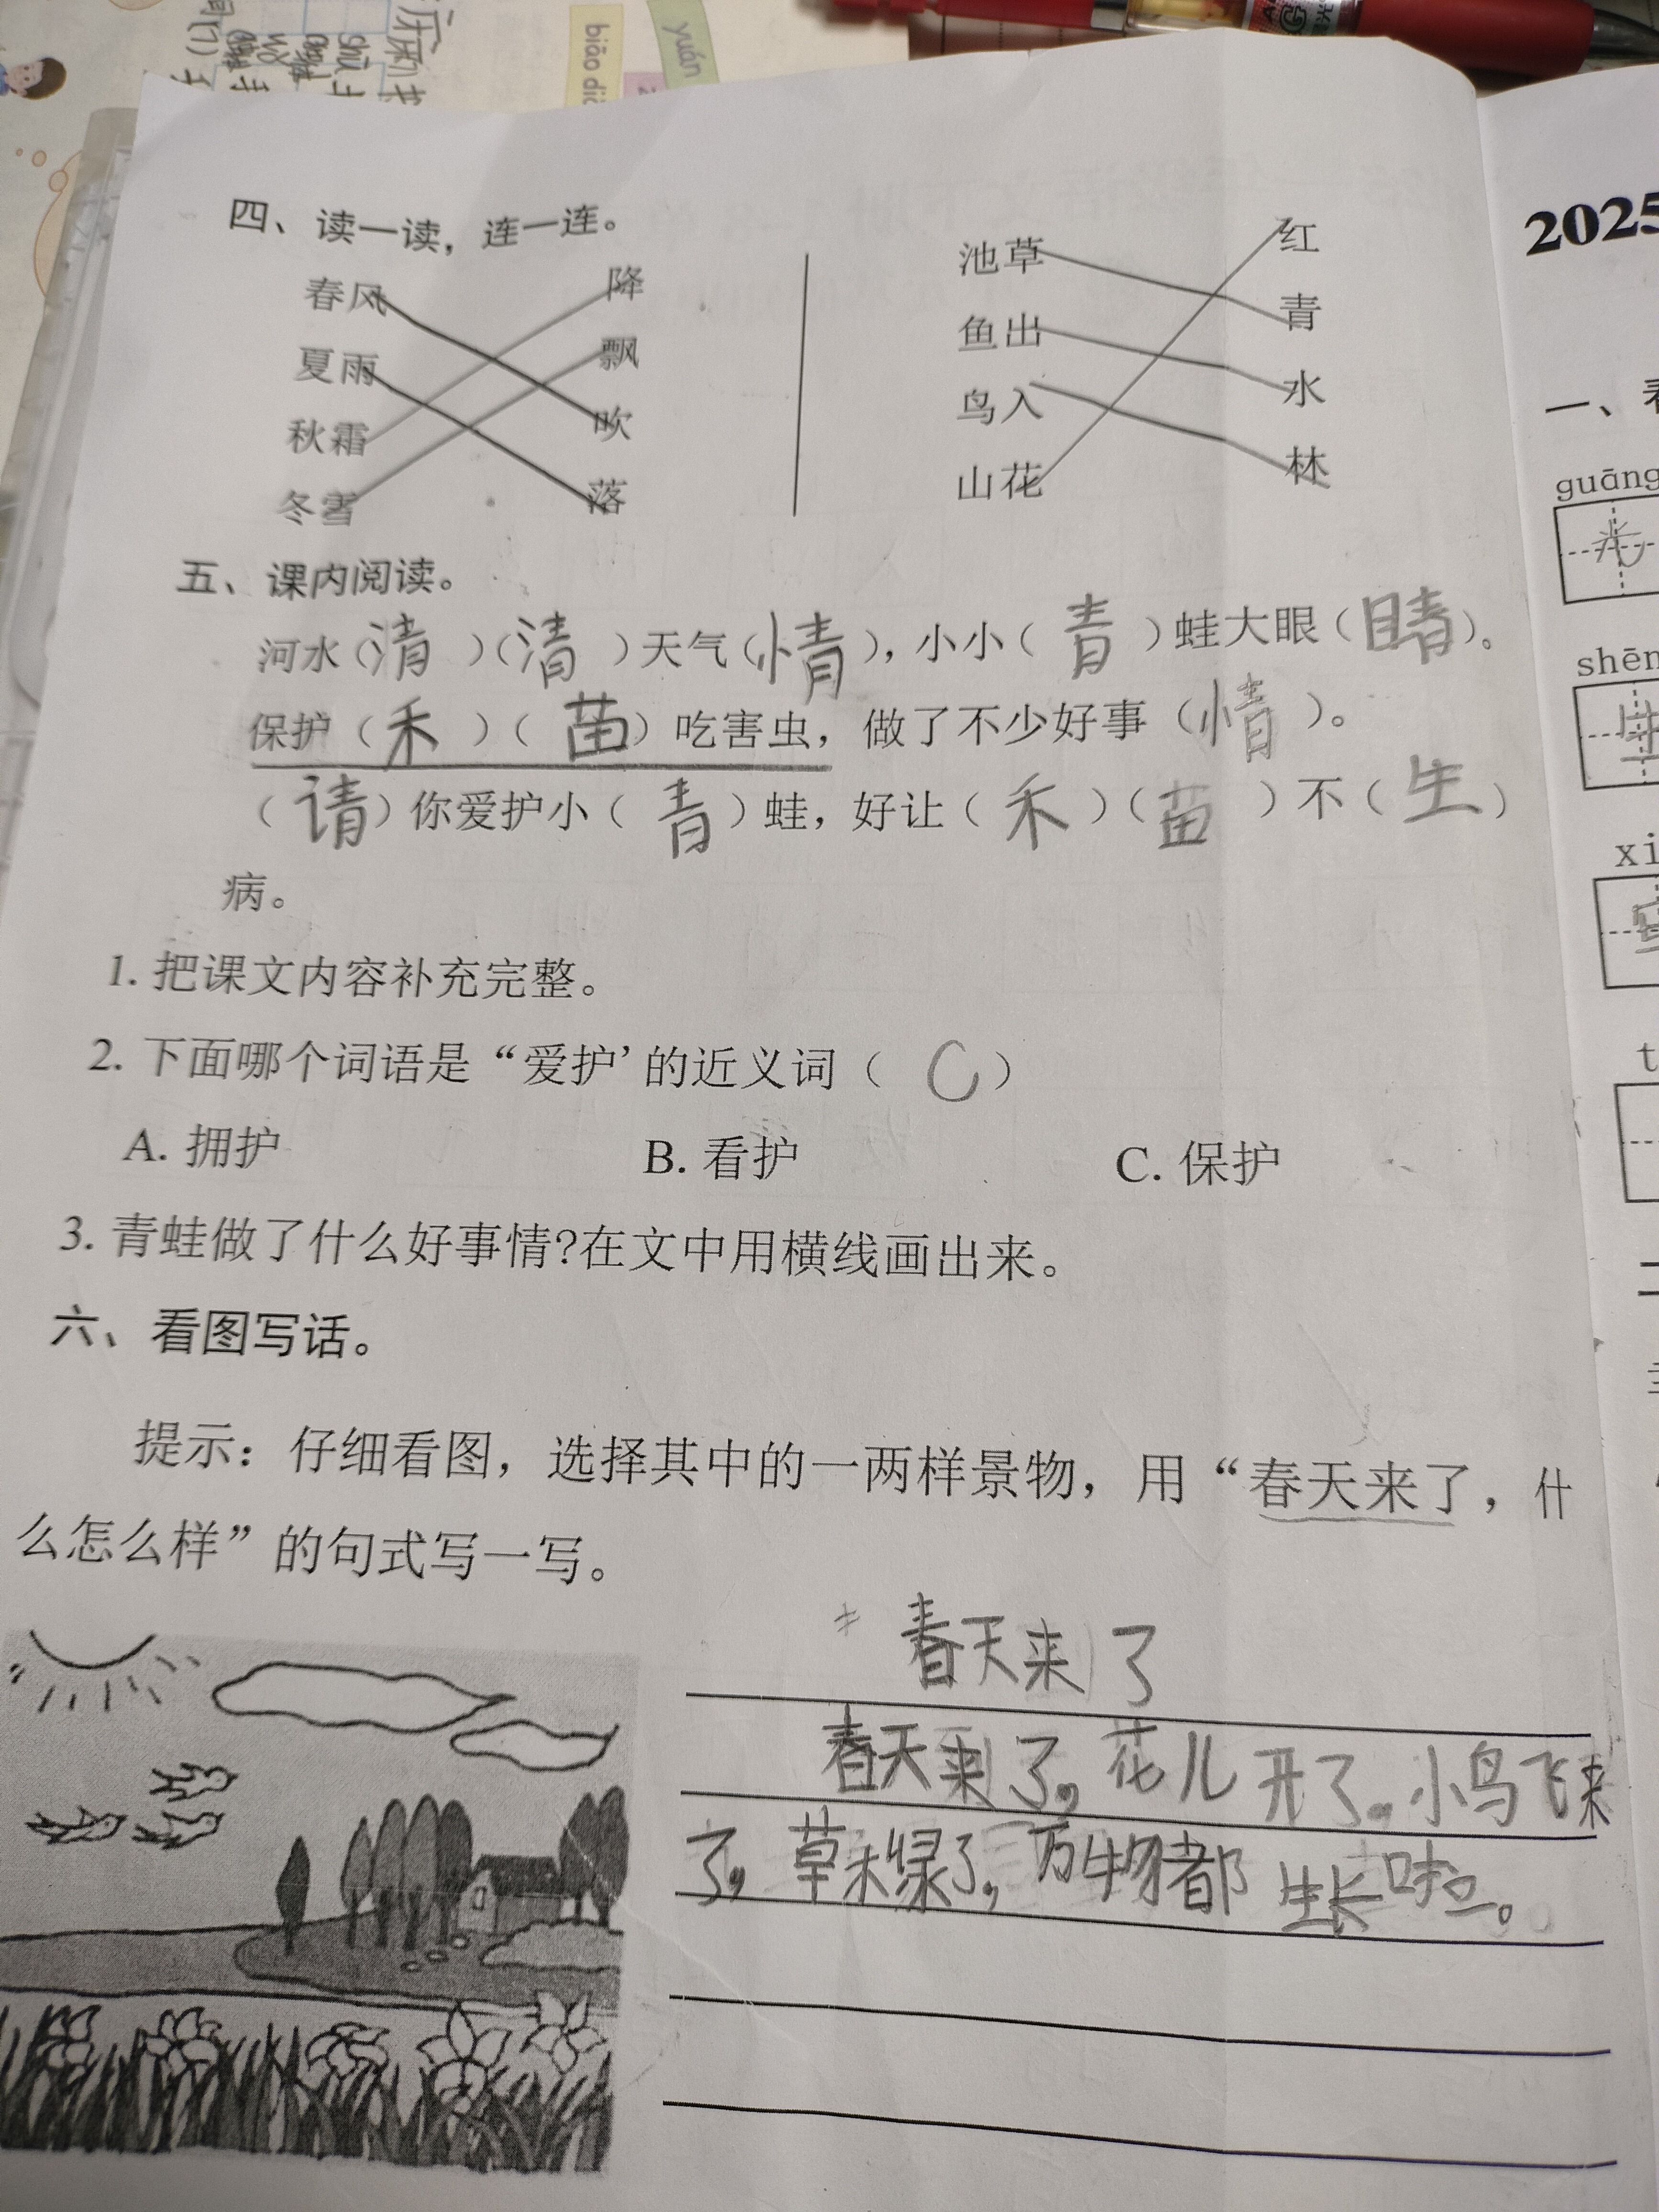 yuán
biāo diǎ
2025
四、读一读，连一连。
春风 降 池草 红
夏雨 飘 鱼出 青
秋霜 吹 鸟入 水
冬雪 落 山花 林
五、课内阅读。
河水（清）（清）天气（情），小小（青）蛙大眼（睛）。
保护（禾）（苗）吃害虫，做了不少好事（情）。
（请）你爱护小（青）蛙，好让（禾）（苗）不（生）
病。
1. 把课文内容补充完整。
2. 下面哪个词语是“爱护’的近义词（ C ）
A. 拥护 B. 看护 C. 保护
3. 青蛙做了什么好事情?在文中用横线画出来。
六、看图写话。
提示：仔细看图，选择其中的一两样景物，用“春天来了，什
么怎么样”的句式写一写。
春天来了
春天来了，花儿开了。小鸟飞来
了，草木绿了，万物都生长啦。
一、看
guāng
光
shēn
xi
t